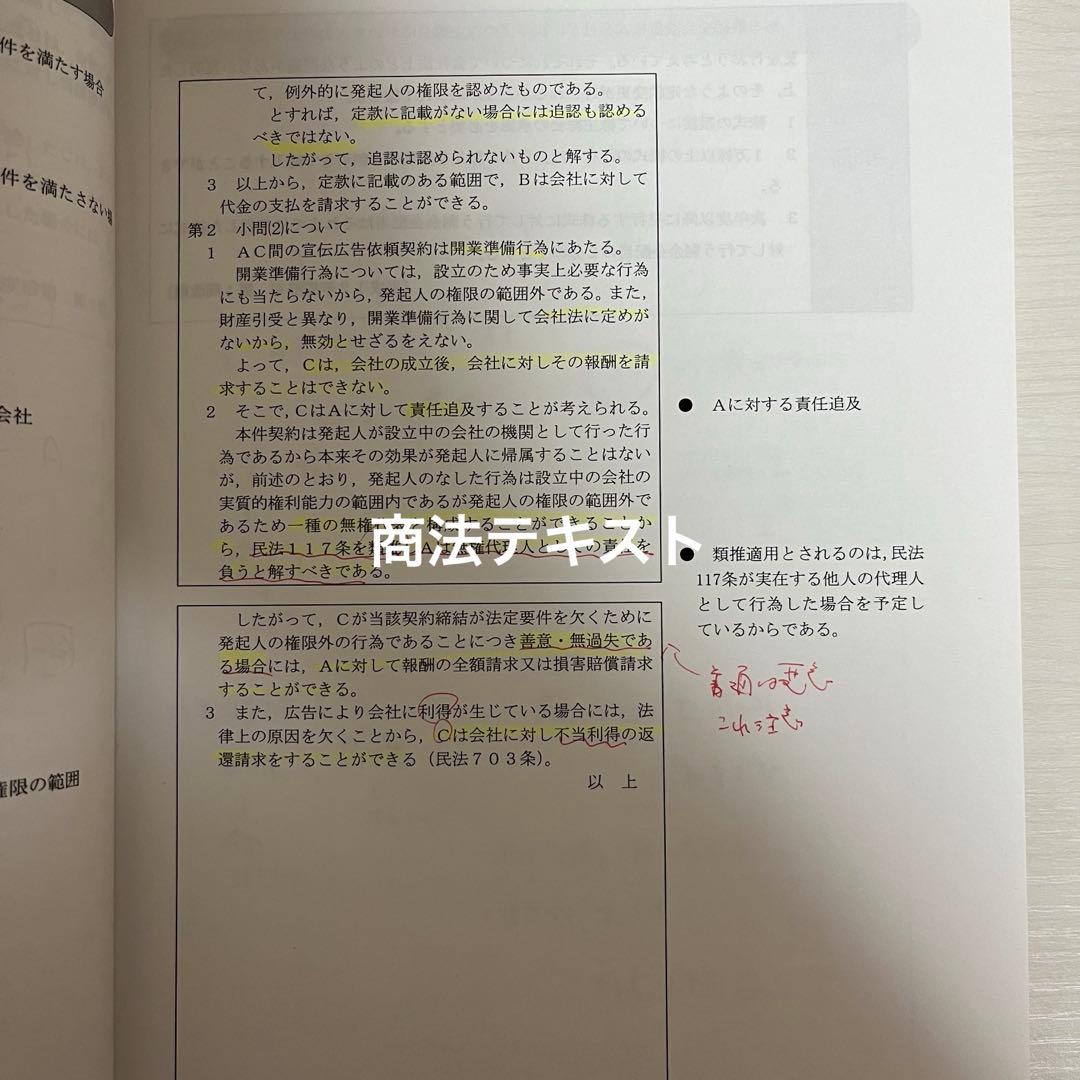 件を満たす場合
件を満たさない場
会社
権限の範囲
て，例外的に発起人の権限を認めたものである。
とすれば，定款に記載がない場合には追認も認める
べきではない。
したがって，追認は認められないものと解する。
3　以上から，定款に記載のある範囲で，Ｂは会社に対して
代金の支払を請求することができる。
第２　小問⑵について
1　ＡＣ間の宣伝広告依頼契約は開業準備行為にあたる。
開業準備行為については，設立のため事実上必要な行為
にも当たらないから，発起人の権限の範囲外である。また，
財産引受と異なり，開業準備行為に関して会社法に定めが
ないから，無効とせざるをえない。
よって，Ｃは，会社の成立後，会社に対しその報酬を請
求することはできない。
2　そこで，ＣはＡに対して責任追及することが考えられる。
本件契約は発起人が設立中の会社の機関として行った行
為であるから本来その効果が発起人に帰属することはない
が，前述のとおり，発起人のなした行為は設立中の会社の
実質的権利能力の範囲内であるが発起人の権限の範囲外で
あるため一種の無権 ることができることか
ら，民法１１７条を類推 代理人としての責任を
負うと解すべきである。
商法テキスト
したがって，Ｃが当該契約締結が法定要件を欠くために
発起人の権限外の行為であることにつき善意・無過失であ
る場合には，Ａに対して報酬の全額請求又は損害賠償請求
することができる。
3　また，広告により会社に利得が生じている場合には，法
律上の原因を欠くことから，Ｃは会社に対し不当利得の返
還請求をすることができる（民法７０３条）。
以　上
●　Ａに対する責任追及
●　類推適用とされるのは，民法
117条が実在する他人の代理人
として行為した場合を予定し
ているからである。
これ注意